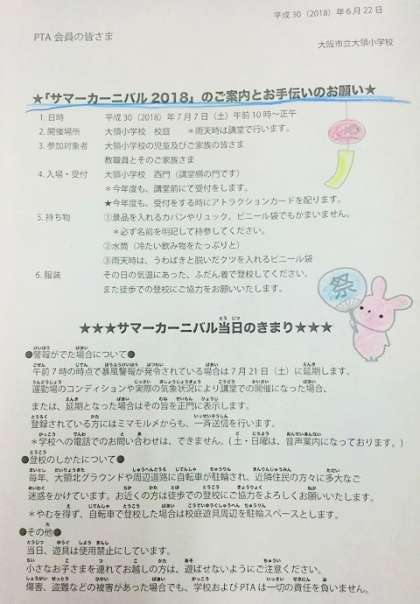 平成30（2018）年6月22日
PTA 会員の皆さま
大阪市立大領小学校
★「サマーカーニバル 2018」のご案内とお手伝いのお願い★
1. 日時　平成30（2018）年7月7日（土）午前10時〜正午
2. 開催場所　大領小学校 校庭　＊雨天時は講堂で行います。
3. 参加対象者　大領小学校の児童及びご家族の皆さま
教職員とそのご家族さま
4. 入場・受付　大領小学校 西門（講堂横の門です）
＊今年度も、講堂前にて受付をします。
★今年度も、受付をする時にアトラクションカードを配ります。
5. 持ち物　①景品を入れるカバンやリュック。ビニール袋でもかまいません。
＊必ず名前を明記して持参してください。
②水筒（冷たい飲み物をたっぷりと）
③雨天時は、うわばきと脱いだクツを入れるビニール袋
6. 服装　その日の気温にあった、ふだん着で登校してください。
また徒歩での登校にご協力をお願いいたします。
祭
★★★サマーカーニバル当日のきまり★★★
●警報がでた場合について●
午前7時の時点で暴風警報が発令されている場合は7月21日（土）に延期します。
運動場のコンディションや実際の気象状況により講堂での開催になった場合、
または、延期となった場合はその旨を正門に表示します。
登録されている方にはミマモルメからも、一斉送信を行います。
＊学校への電話でのお問い合わせは、できません。（土・日曜は、音声案内になっております。）
●登校のしかたについて●
毎年、大領北グラウンドや周辺道路に自転車が駐輪され、近隣住民の方々に多大なご
迷惑をかけています。お近くの方は徒歩での登校にご協力をよろしくお願いいたします。
＊やむを得ず、自転車で登校した場合は校庭遊具周辺を駐輪スペースとします。
●その他●
当日、遊具は使用禁止にしています。
小さなお子さまを連れてお越しの方は、遊ばせないようにご注意ください。
傷害、盗難などの被害があった場合でも、学校およびPTAは一切の責任を負いません。